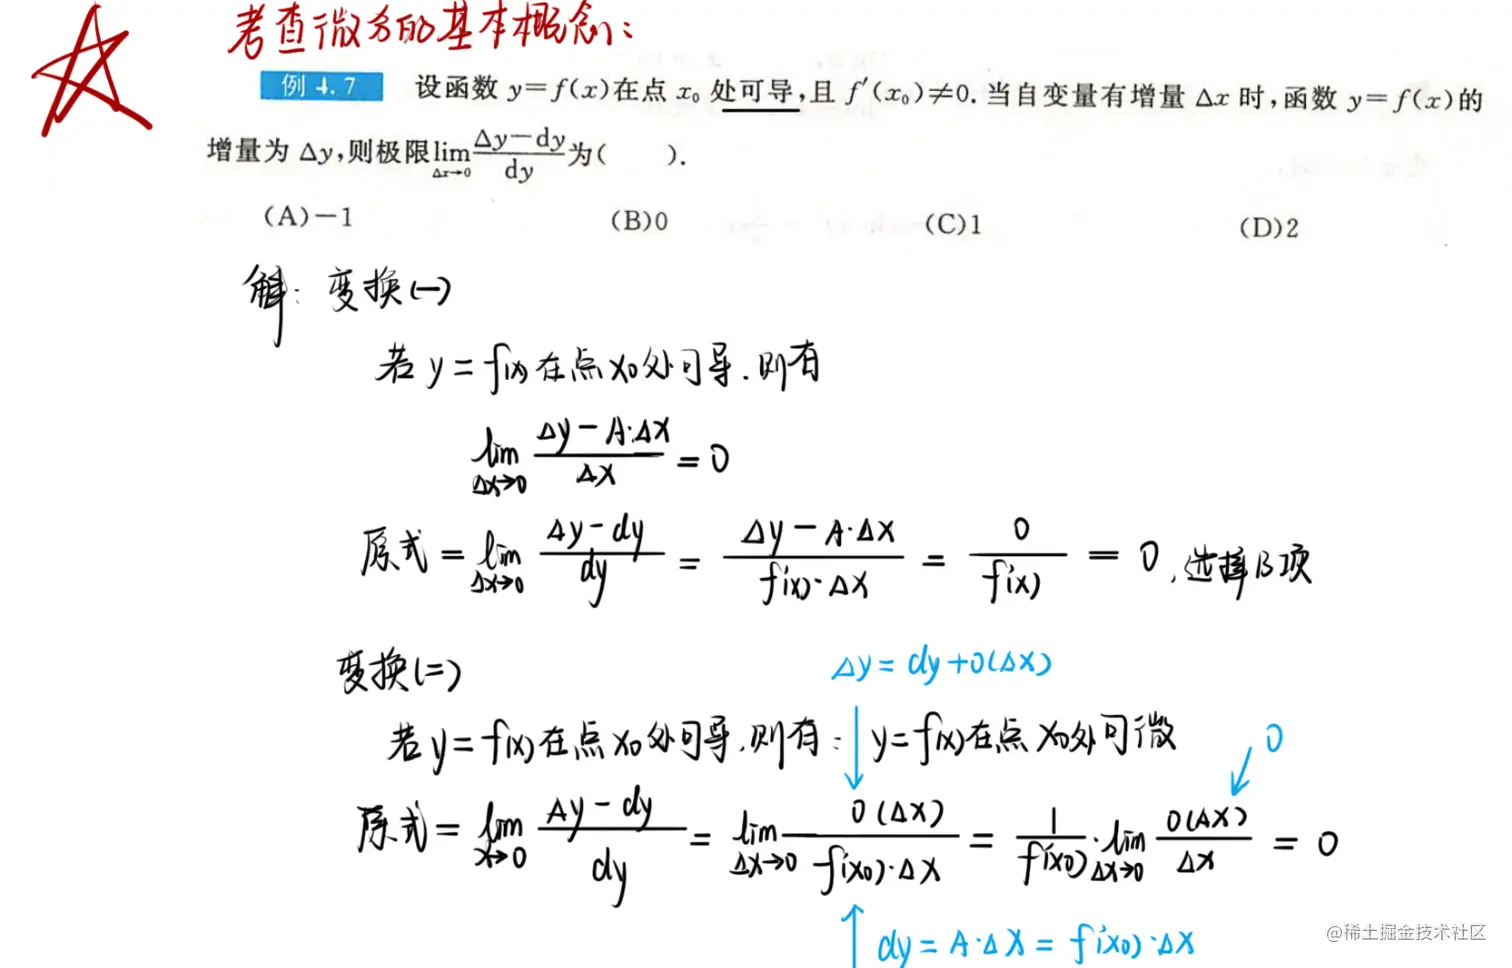 考查微分的基本概念：
例 4.7 设函数 y=f(x)在点 x₀ 处可导,且 f′(x₀)≠0. 当自变量有增量 Δx 时,函数 y=f(x)的
增量为 Δy,则极限 lim_{Δx→0} (Δy−dy)/dy 为(　　).
(A)−1 (B)0 (C)1 (D)2
解：变换(一)
若 y=f(x)在点 x₀处可导.则有
lim_{Δx→0} (Δy−A·Δx)/Δx = 0
原式 = lim_{Δx→0} (Δy−dy)/dy = (Δy−A·Δx)/(f'(x)·Δx) = 0/f'(x) = 0 ,选择B项
变换(二)
Δy = dy+0(Δx)
若 y=f(x)在点 x₀处可导.则有：y=f(x)在点 x₀处可微
0
原式 = lim_{x→0} (Δy−dy)/dy = lim_{Δx→0} 0(Δx)/(f'(x₀)·Δx) = 1/f'(x₀)·lim_{Δx→0} 0(Δx)/Δx = 0
dy = A·Δx = f'(x₀)·Δx
@稀土掘金技术社区